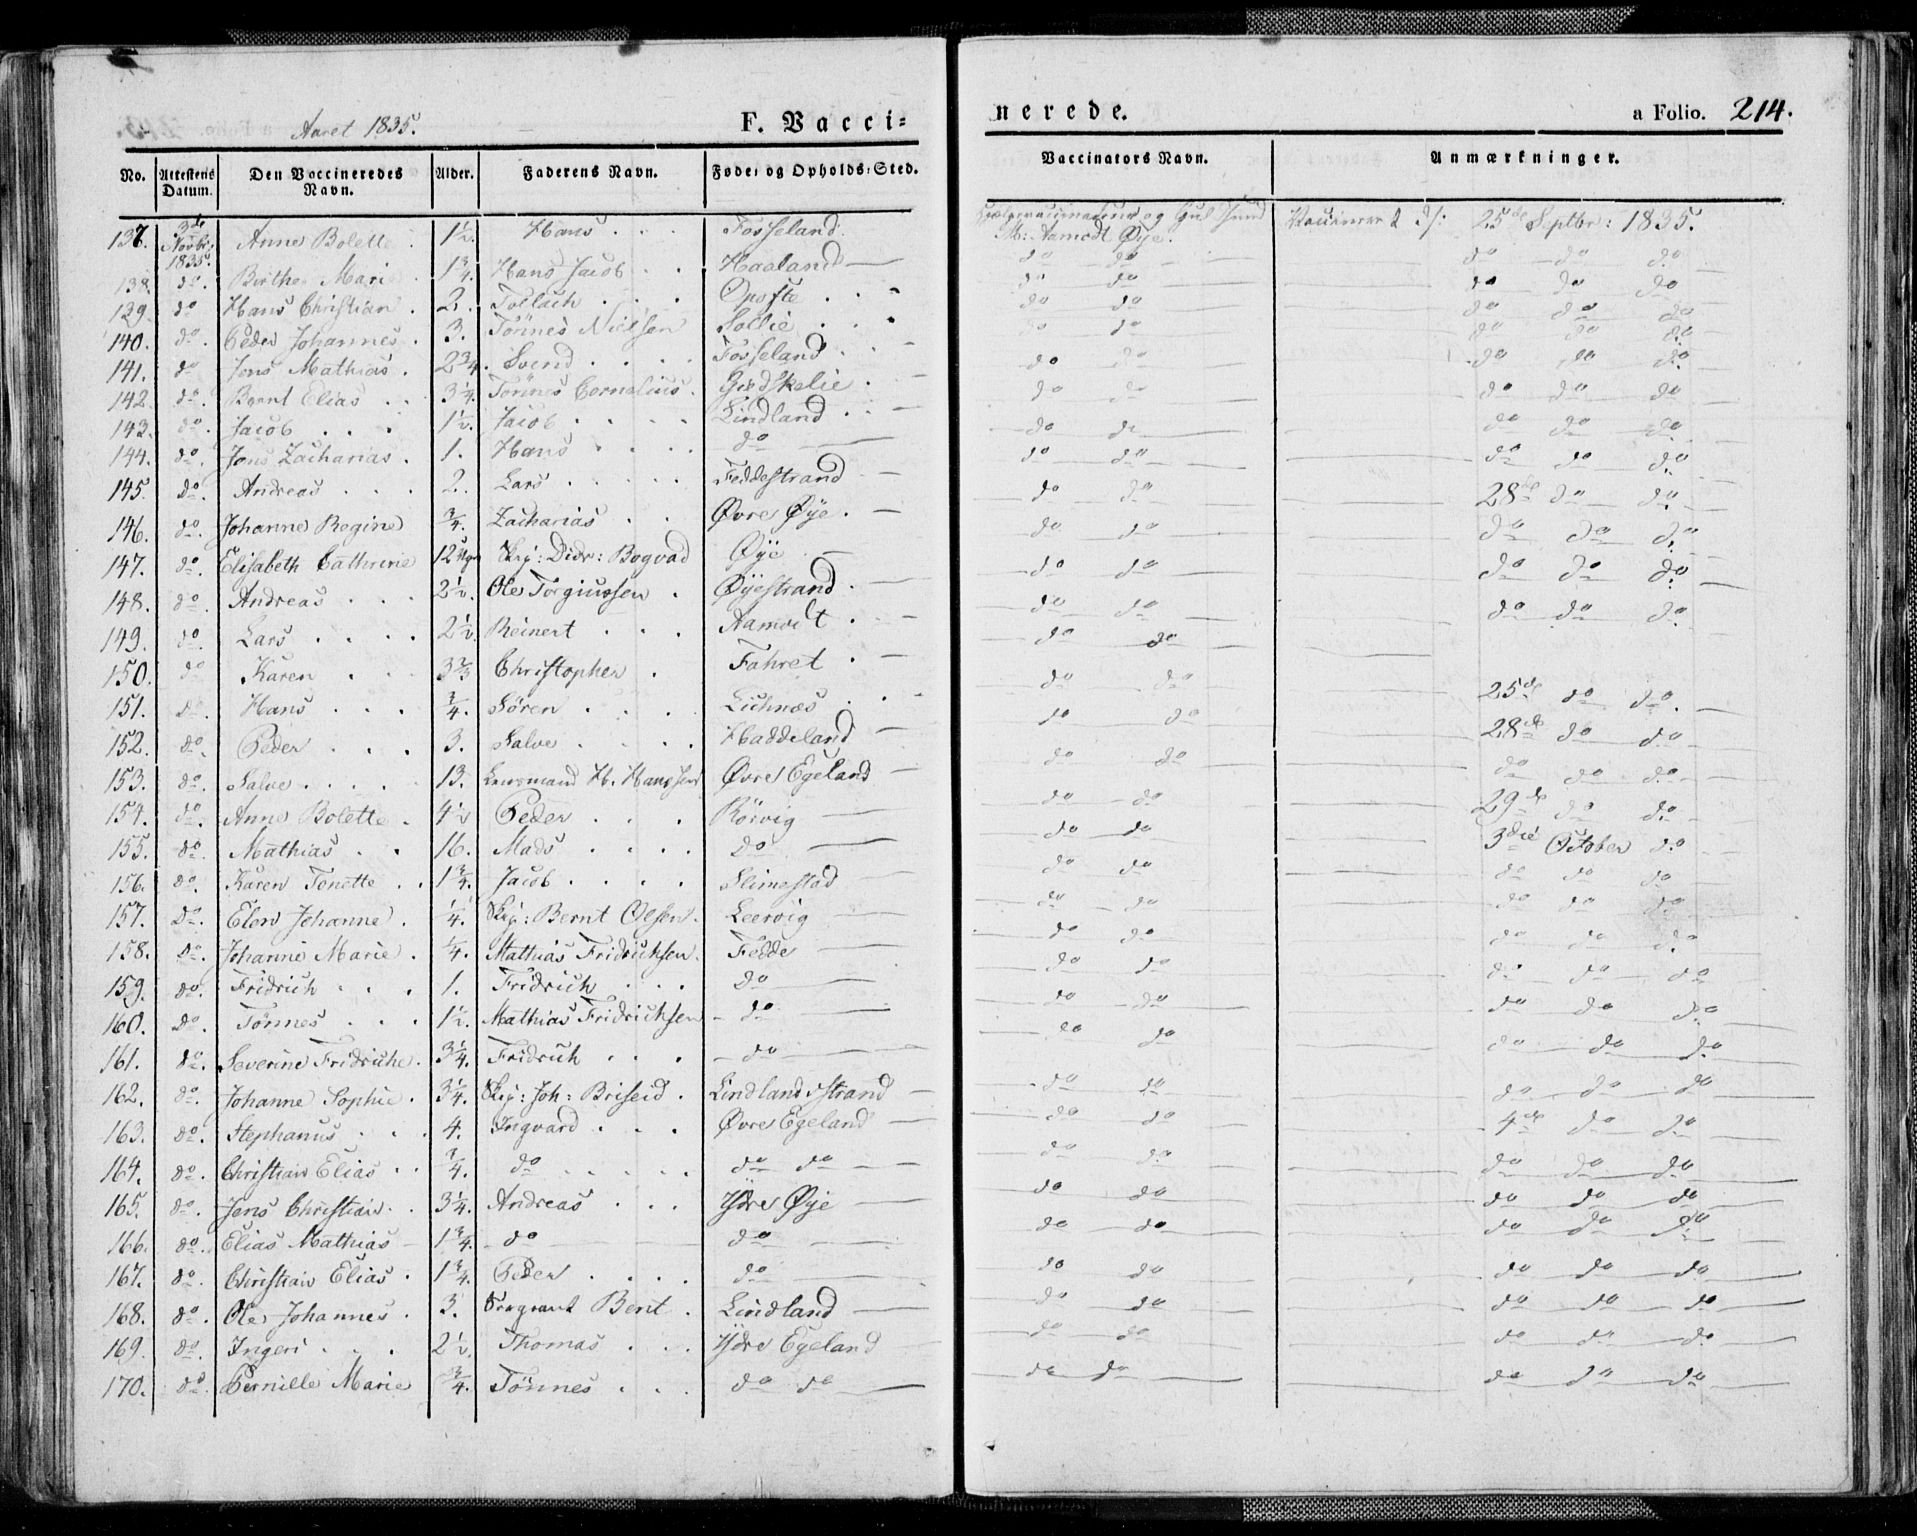 Aaret 1835. F. Vacci= nerede. a Folio. 214.
No. Attestens Datum. Den Vaccineredes Navn. Alder. Faderens Navn. Føde- og Opholds-Sted. Vaccinators Navn. Anmærkninger.
137. 3die Novbr. 1835. Anne Bolette. 1½. Hans . . . Fosseland. og M: Aamodt Øye. Vaccineret d: 25de Septbr: 1835.
138. do. Birthe Marie 1¾. Hans Jacob . . Haaland — do do do do do
139. do Hans Christian . 2. Tollach . . . Opofte . . - do do do do do
140. do. Peder Johannes . 3. Tönnes Nielsen Sollie . . . do do do do do
141. do Jens Mathias . 2¾. Svend . . . . Fosseland . . do do do do do.
142 do. Bernt Elias . . 3¼. Tönnes Cornelius . Gjedskelie . - do do do do do.
143. do. Jacob . . . 1½. Jacob . . . . Lindland . . - do do do do do
144. do. Jens Zacharias . 1. Hans . . . . do — do do do do do
145. do. Andreas . . . 2. Lars . . . . . Feddestrand — do do 28de do do.
146. do. Johanne Regine ¾. Zacharias . . Øvre Øye . — do do do do do
147. do. Elisabeth Cathrine 12 Skip: Didr: Bogvad Øye — do do do do do
148. do. Andreas . . . 2½. Ole Torgiussen . Øyestrand . — do do do do do
149. do. Lars . . . . 2½. Reinert . . . Aamodt . . — do do
150. do Karen . . . 3 Christopher . Fahret . — do do 25de do do.
151. do. Hans . . . ¾. Sören . . . . do do 28de do do
152. do. Peder . . . 3. Salve . . . . Haddeland — do do do do do
153. do. Salve . . . . 13. Lensmand H. Hanssen Øvre Egeland — do do 29de do do.
154. do. Anne Bolette . 4½ Peder . . . Rörvig — do do 3die October do
155. do. Mathias . . 16. Mads . . . . do — do do do do do
156. do. Karen Tonette . . 1¾. Jacob . . . . Slimestad — do do do do do
157. Do. Elen Johanne . ¼. Skip: Bernt Olsen . Leervig — do do do do do.
158. Do. Johanne Marie . ¼. Mathias Fridrichsen . Fedde — do do do do do
159. do. Fridrich . . . 1. Fridrich . . . do — do do do do do.
160. Do. Tönnes . . . 1½. Mathias Fridrichsen - do — do do do do do
161. do. Severine Fridriche . 3¼. Fridrich . . . - do — do do do do do
162. do. Johanne Sophie . 3¼. Skip: Joh: Briseid . Lindlandsstrand — do do 4de do do
163. do. Stephanus . . . 4. Ingvard . . . Øvre Egeland — do do do do do
164. do. Christian Elias . . ¾. do . . . . . do do — do do do do do
165. do. Jens Christian . . 3¼. Andreas . . . Ydre Øye — do do do do do
166. do. Elias Mathias — 1¾. - do — do — do do do do do
167. do. Christian Elias . 1¾. Peder . . . . do — do do do do do
168. do. Ole Johannes . 3. Sergeant Berit . Lindland — do do do do do.
169. do. Ingeri . . . 2½. Thomas . . . Ydre Egeland — do do do do do
170. do. Pernille Marie ¾. Tönnes . . . do do — do do